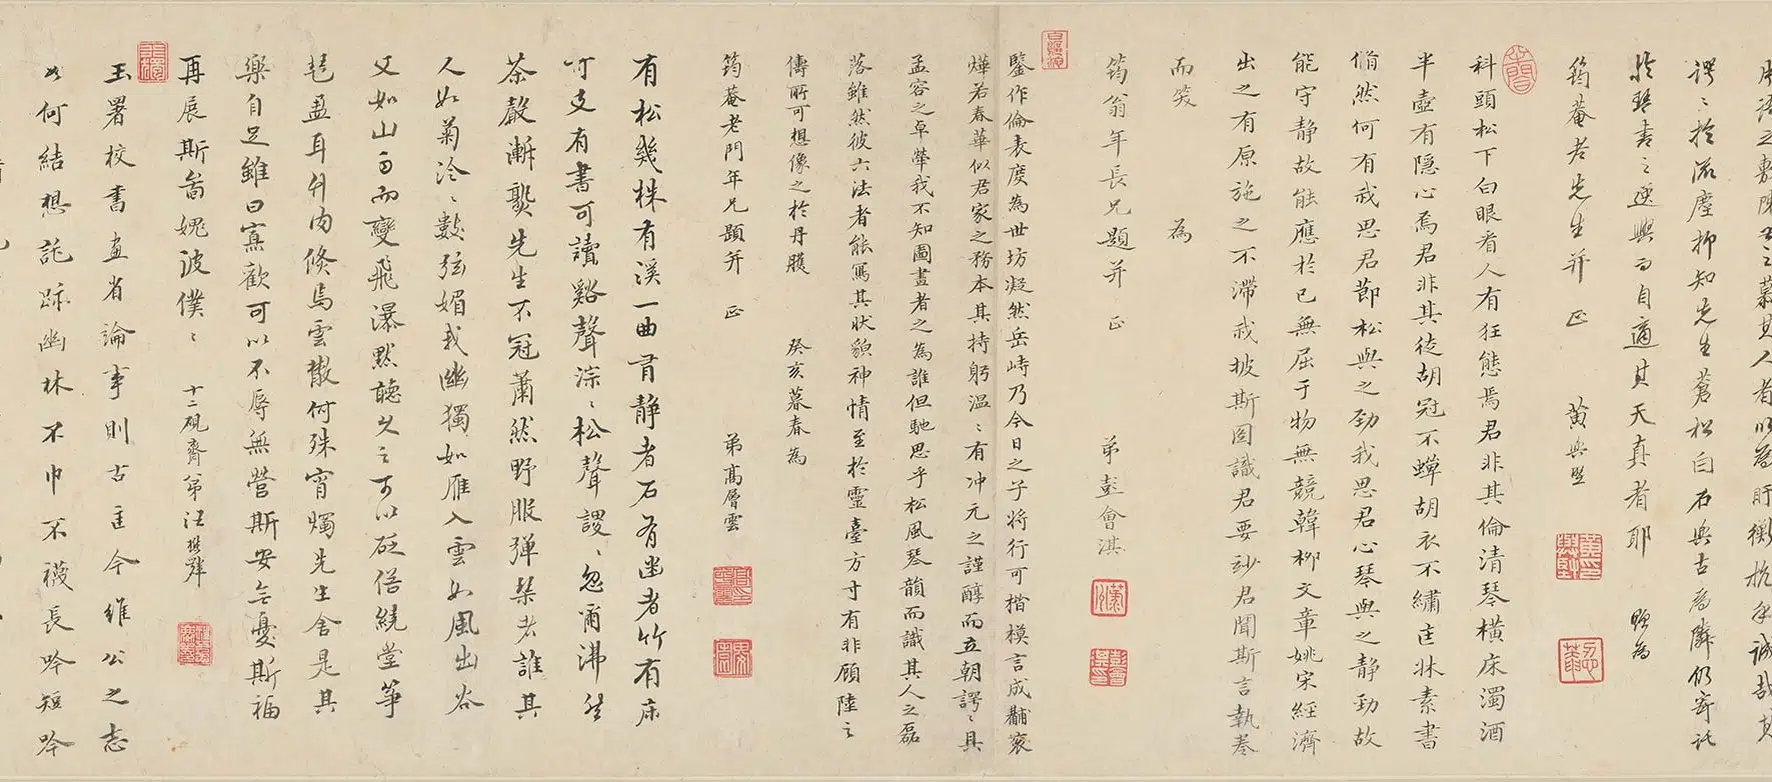 謬〻於流塵抑知先生蒼松白石與古為鄰仍寄託
於琴書之逸興而自適其天真者耶 題為
筠菴老先生并 正 黃與堅
科頭松下白眼看人有狂態焉君非其倫清琴橫床濁酒
半壺有隱心焉君非其徒胡冠不蟬胡衣不繡匡牀素書
翛然何有我思君節松與之勁我思君心琴與之靜勁故
能守靜故能應於已無屈于物無競韓柳文章姚宋經濟
出之有原施之不滯我披斯圖識君要妙君聞斯言執卷
而笑 為
筠翁年長兄題并 正 弟彭會淇
鑒作倫表度為世坊凝然岳峙乃今日之子將行可楷模言成黼袞
燁若春華似君家之務本其持躬溫〻有冲元之謹醇而立朝諤〻具
孟容之卓犖我不知圖畫者之為誰但馳思乎松風琴韻而識其人之磊
落雖然彼六法者能寫其狀貌神情至於靈臺方寸有非顧陸之
傳所可想像之於丹雘 癸亥暮春為
筠菴老門年兄題并 正 弟高層雲
有松幾株有溪一曲有靜者石有幽者竹有床
可支有書可讀谿聲淙〻松聲謖〻忽爾沸然
茶聲漸爨先生不冠蕭然野服彈琴者誰其
人如菊泠〻數弦媚我幽獨如雁入雲如風出谷
又如山雨而變飛瀑默聽久之可以砭俗繞堂箏
琶盈耳升肉倏焉雲散何殊宵燭先生舍是其
樂自足雖曰寡歡可以不辱無營斯安無憂斯福
再展斯圖媿汝僕〻 十二硯齋弟汪懋麟
玉署校書畫省論事則古匡今維公之志
如何結想託跡幽林不巾不襪長吟短吟